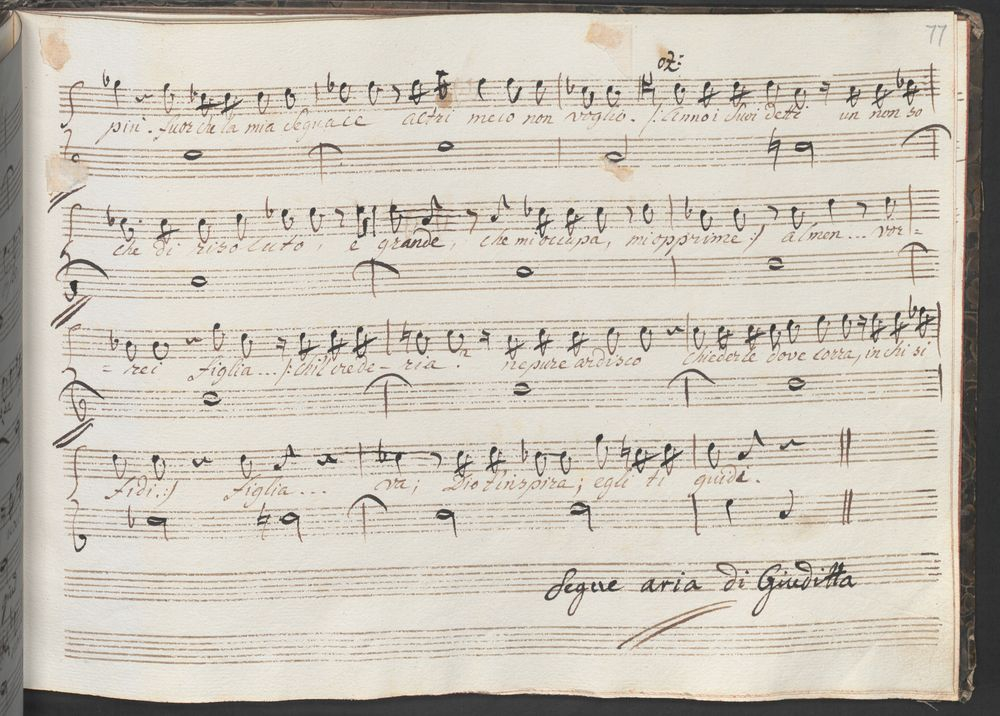 77
oz:
piu. fuor che la mia seguace altri meco non voglio. /: Cenno i suoi detti un non so
che di risoluto, e grande, che mi occupa, mi opprime :/ almen... vor=
=rei figlia... /: chi'l crede=ria? nepure ardisco chiederle dove corra, in chi si
fidi. :/ figlia... va; Dio t'inspira; egli ti guida.
Segue aria di Giuditta